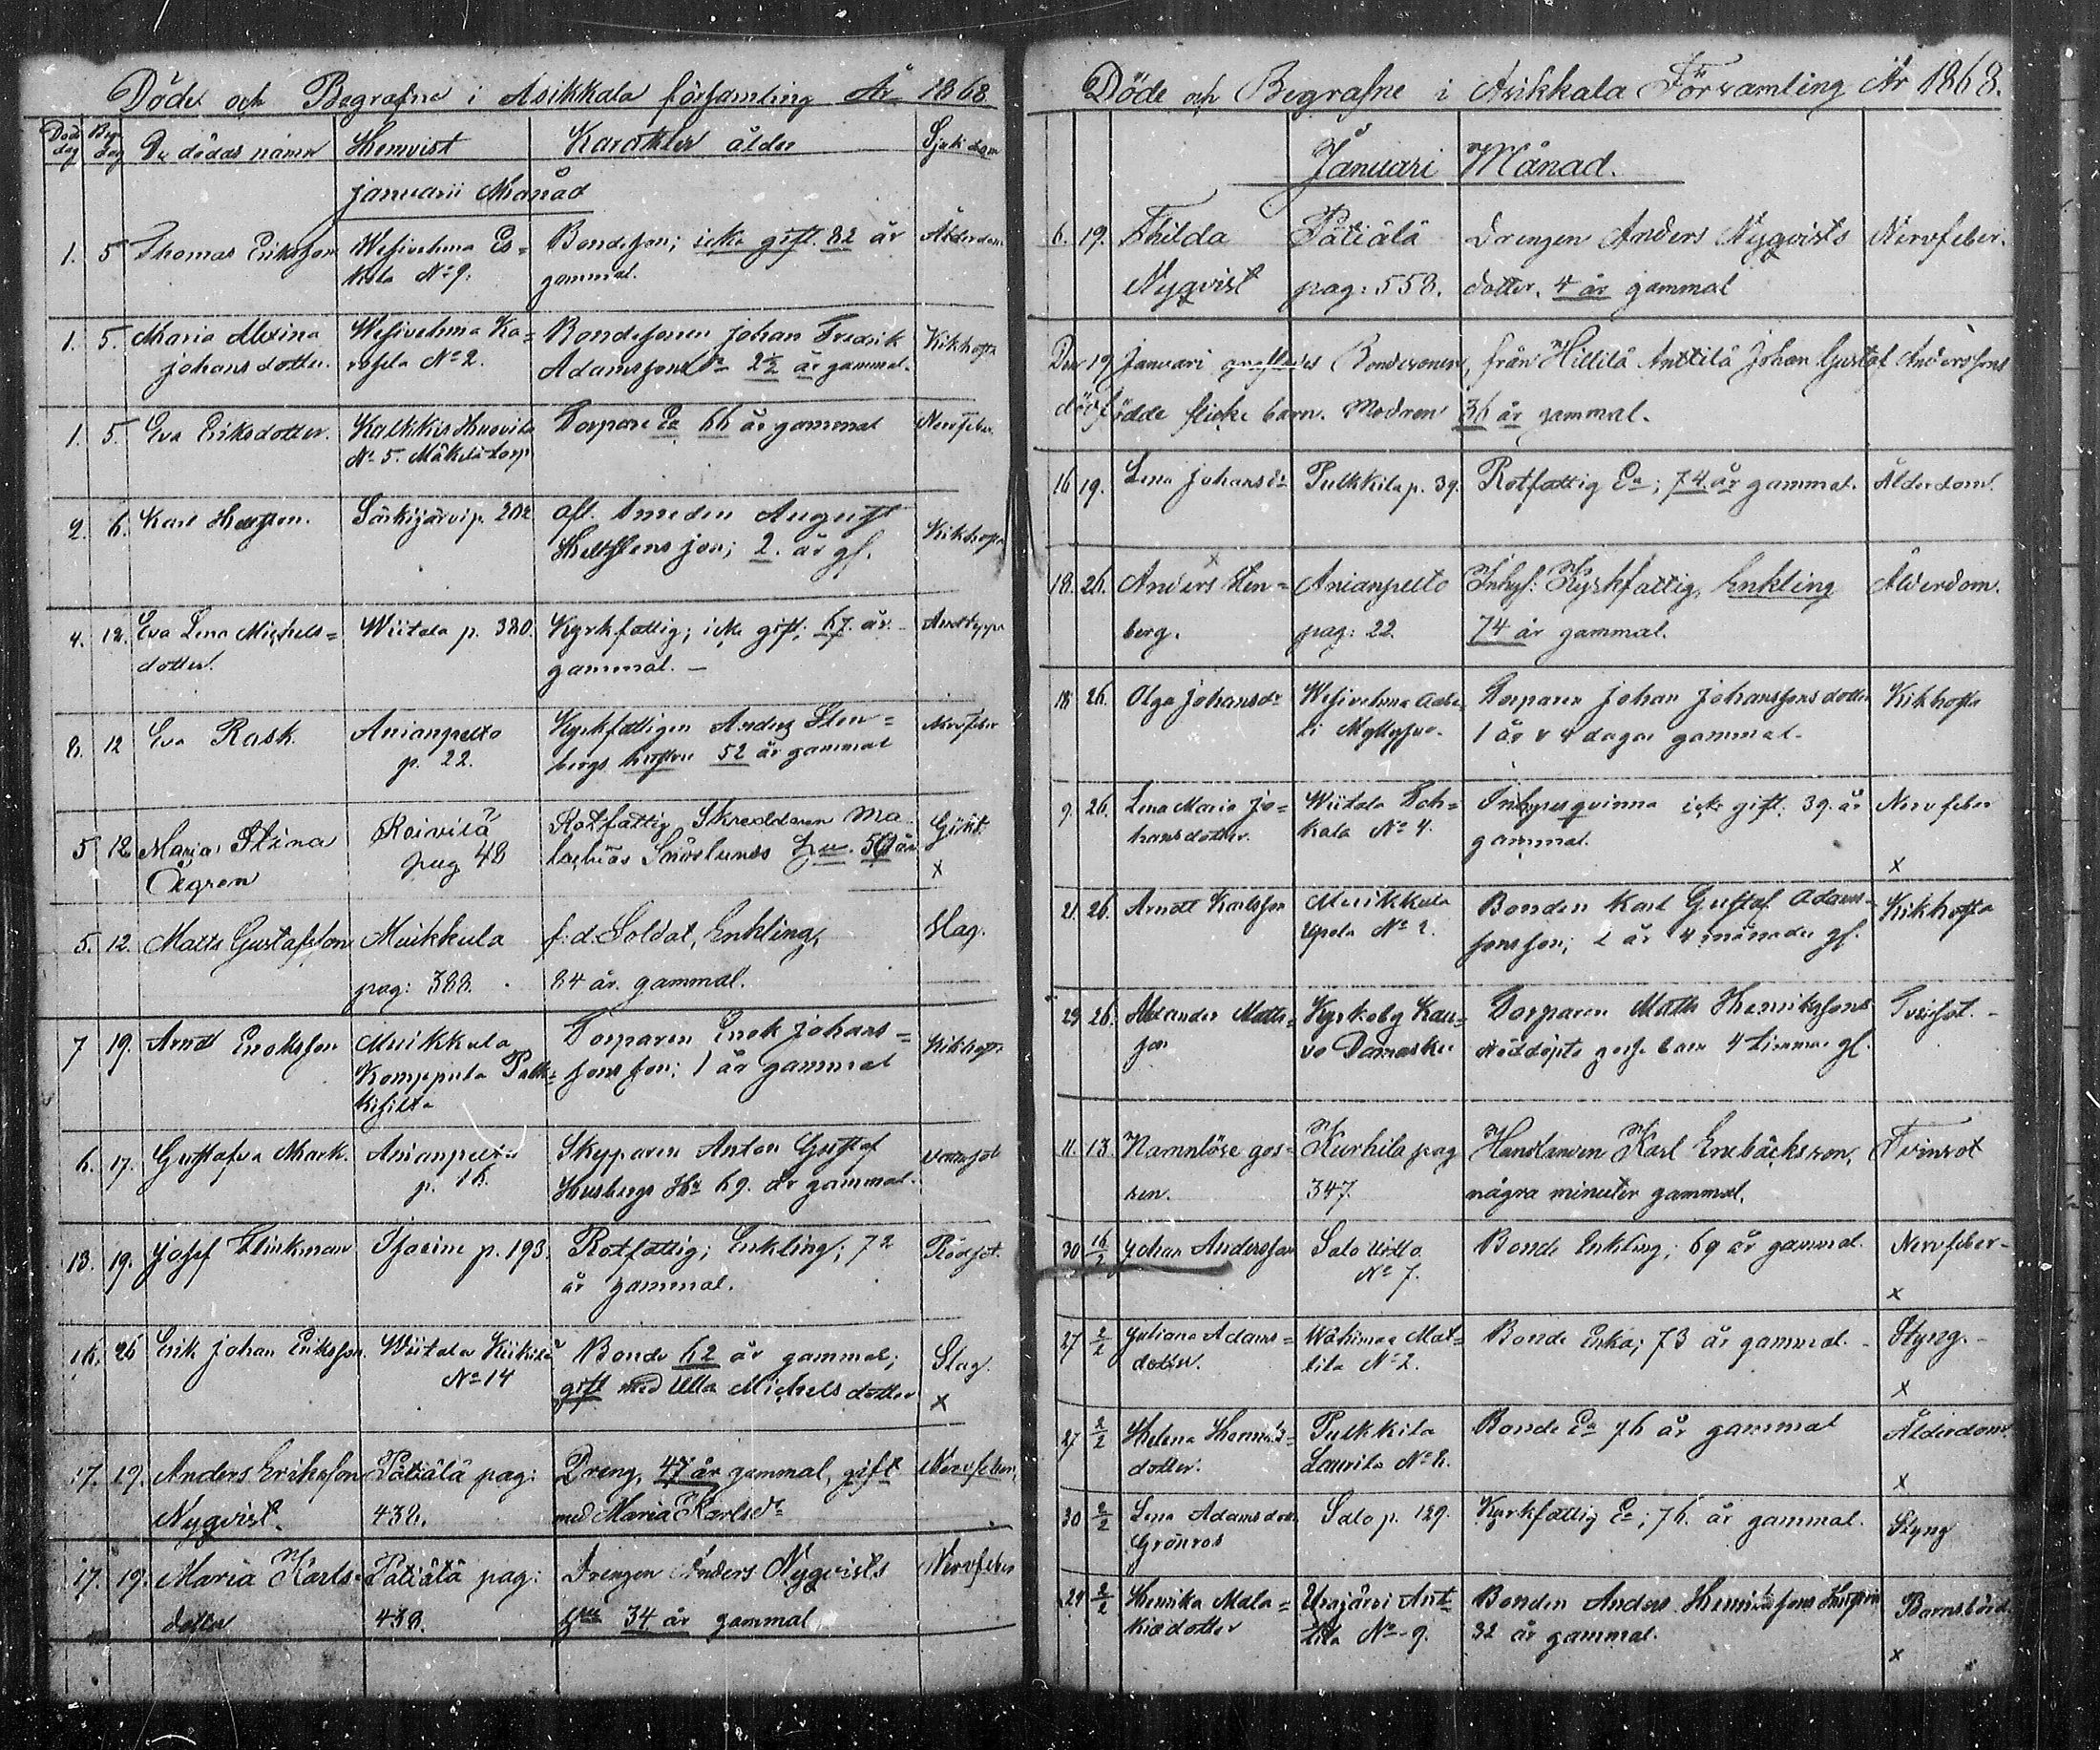 Döde och Begrafne i Asikkala församling År 1868
Död dag Begr. dag De dödas namn Hemvist Karakter ålder Sjukdom
januarii Månad
1. 5 Thomas Eriksson Wesivehma Es= Bondeson; icke gift. 82 år Ålderdom
kola No 9. gammal.
1. 5. Maria Alexina Wesivehma Ka= Bondesonen Johan Fredrik Kikhosta
johansdotter. No 2. Adamssons 2½ år gammal.
1. 5. Eva Eriksdotter. Kalkkis Torpare Ea 66 år gammal Nervfeber
No 5. Mäkelä torp
2. 6. Karl Särkijärvi p. 202 afl. Smeden August Kikhosta
son; 2. år gl.
4. 12. Eva Lena Michels= Wiitala p. 380. Kyrkfattig; icke gift, 67. år
dotter. gammal. —
8. 12 Eva Rask. Anianpelto Kyrkfattigen Anders Sten= Nervfeber
p. 22. bergs hustru 52 år gammal
5 12 Maria Stina Reivilä Rotfattig Skreddaren Ma= Gikt
Öegren pag 48 lachias hu. år x
5. 12. Matts Gustafsson Muikkula f.d. Soldat, Enkling, Slag.
pag: 388. 84 år gammal.
7 19. Arndt Enoksson Muikkula Torparen Enok johans= Kikhosta
Komppula sons son; 1 år gammal
6. 17. Gustafva Mark. Anianpelto Anton Gustaf
p. 16. Husbergs Hu 69. år gammal.
13. 19. Josef Flinkman p. 193. Rotfattig; Enkling; 72 Rödsot.
år gammal.
16. 26 Erik Johan Eriksson. Wiitala Bonde 62 år gammal; Slag.
No 14 gift med Ulla Michelsdotter x
17. 19. Anders Eriksson Pätiälä pag: Dreng, 47 år gammal, gift Nervfeber,
Nyqvist. 438. med Maria Karlsdr
17. 19. Maria Karls= Pätiälä pag: Drengen Anders Nyqvists Nervfeber
dotter 438. hu 34 år gammal
Döde och Begrafne i Asikkala Församling År 1868.
Januari Månad.
6. 19. Thilda Pätiälä Drengen Anders Nyqvists Nervfeber.
Nyqvist pag: 558. dotter. 4 år gammal
Den 19 Januari Bondesonens, från Hillilä Anttilä Johan Gustaf Anderssons
dödfödde flicke barn. Modren 36 år gammal.
16 19. Lena Johansdr Pulkkila p. 39. Rotfattig Ea; 74 år gammal. Ålderdom.
18. 26. Anders Sten= Anianpelto Inhys: Kyrkfattig, Enkling Ålderdom.
berg. pag: 22. 74 år gammal.
18 26. Olga Johansdr Wesivehma Torparen Johan Johanssons dotter Kikhosta
1 år 4 dagar gammal.
9. 26. Lena Maria Jo= Wiitala Inhysesqvinna icke gift. 39. år Nervfeber
hansdotter. No 4. gammal. x
21. 26. Arndt Karlsson Muikkula Bonden Karl Gustaf Adams= Kikhosta
No 2. sons son; 2 år 4 månader gl.
29 26. Alexander Matts= Kyrkoby Torparen Matts Henrikssons
son nöddöpta gosse barn 4 timmar gl.
11. 13. Namnlöse gos= Kurhila pag Karl Enebäcks son, Tvinsot
sen. 347. några minuter gammal.
30 16/2 Johan Andersson Salo No 7. Bonde Enkling; 69 år gammal. Nervfeber- x
27 2/2 Juliana Adams= Wähimaa Mat= Bonde Enka; 73 år gammal. Styng.-
dotter. tila No 2. x
27 2/2 Helena Pulkkila Bonde Ea 76 år gammal Ålderdom.
dotter. Laurila No 8. x
30 2/2 Lena Adamsdotter Salo p. 129. Kyrkfattig Ea; 76. år gammal. Styng
Grönros
29 2/2 Henrika Mala= Urajärvi Ant= Bonden Anders Henrikssons Hustru Barnsbörd.
kiadotter tila No 9. 32 år gammal. x